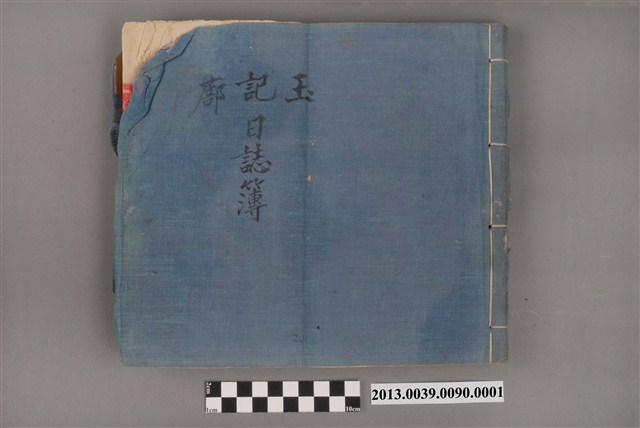 玉記廓
日誌簿
2cm
1cm
10cm
2013.0039.0090.0001